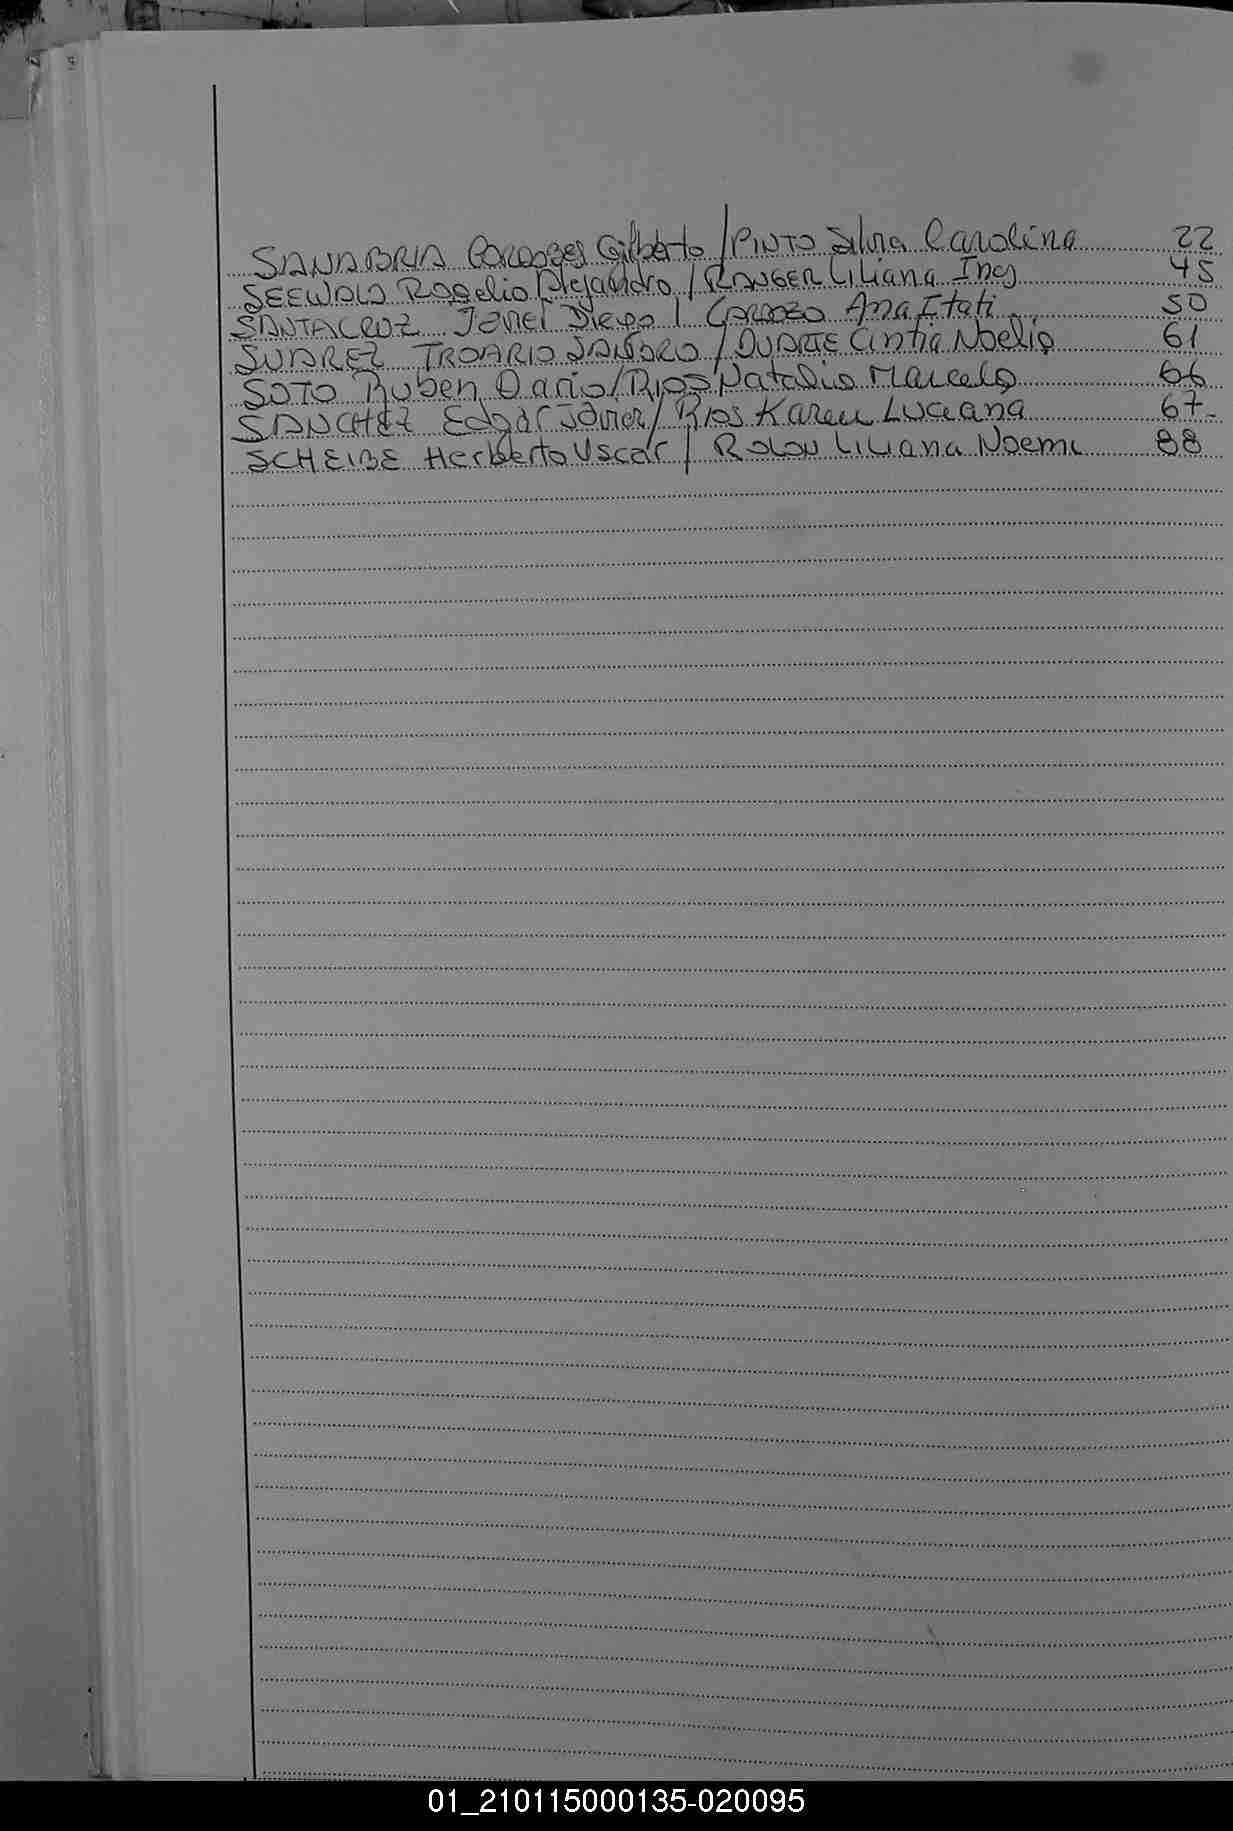 SANABRIA Gilberto / PINTO Silvia Carolina 22
SEEWALD Rogelio Alejandro / RANGER Liliana Ines 45
SANTACRUZ Diego / CARDOZO Ana Itati 50
SUAREZ SANDRO / DUARTE Cintia Noelia 61
SOTO Ruben Dario / RIOS Natalia Marcela 66
SANCHEZ Edgar Javier / Rios Karen Luciana 67
SCHEIBE Herberto Oscar / ROLON Liliana Noemi 88
01_210115000135-020095